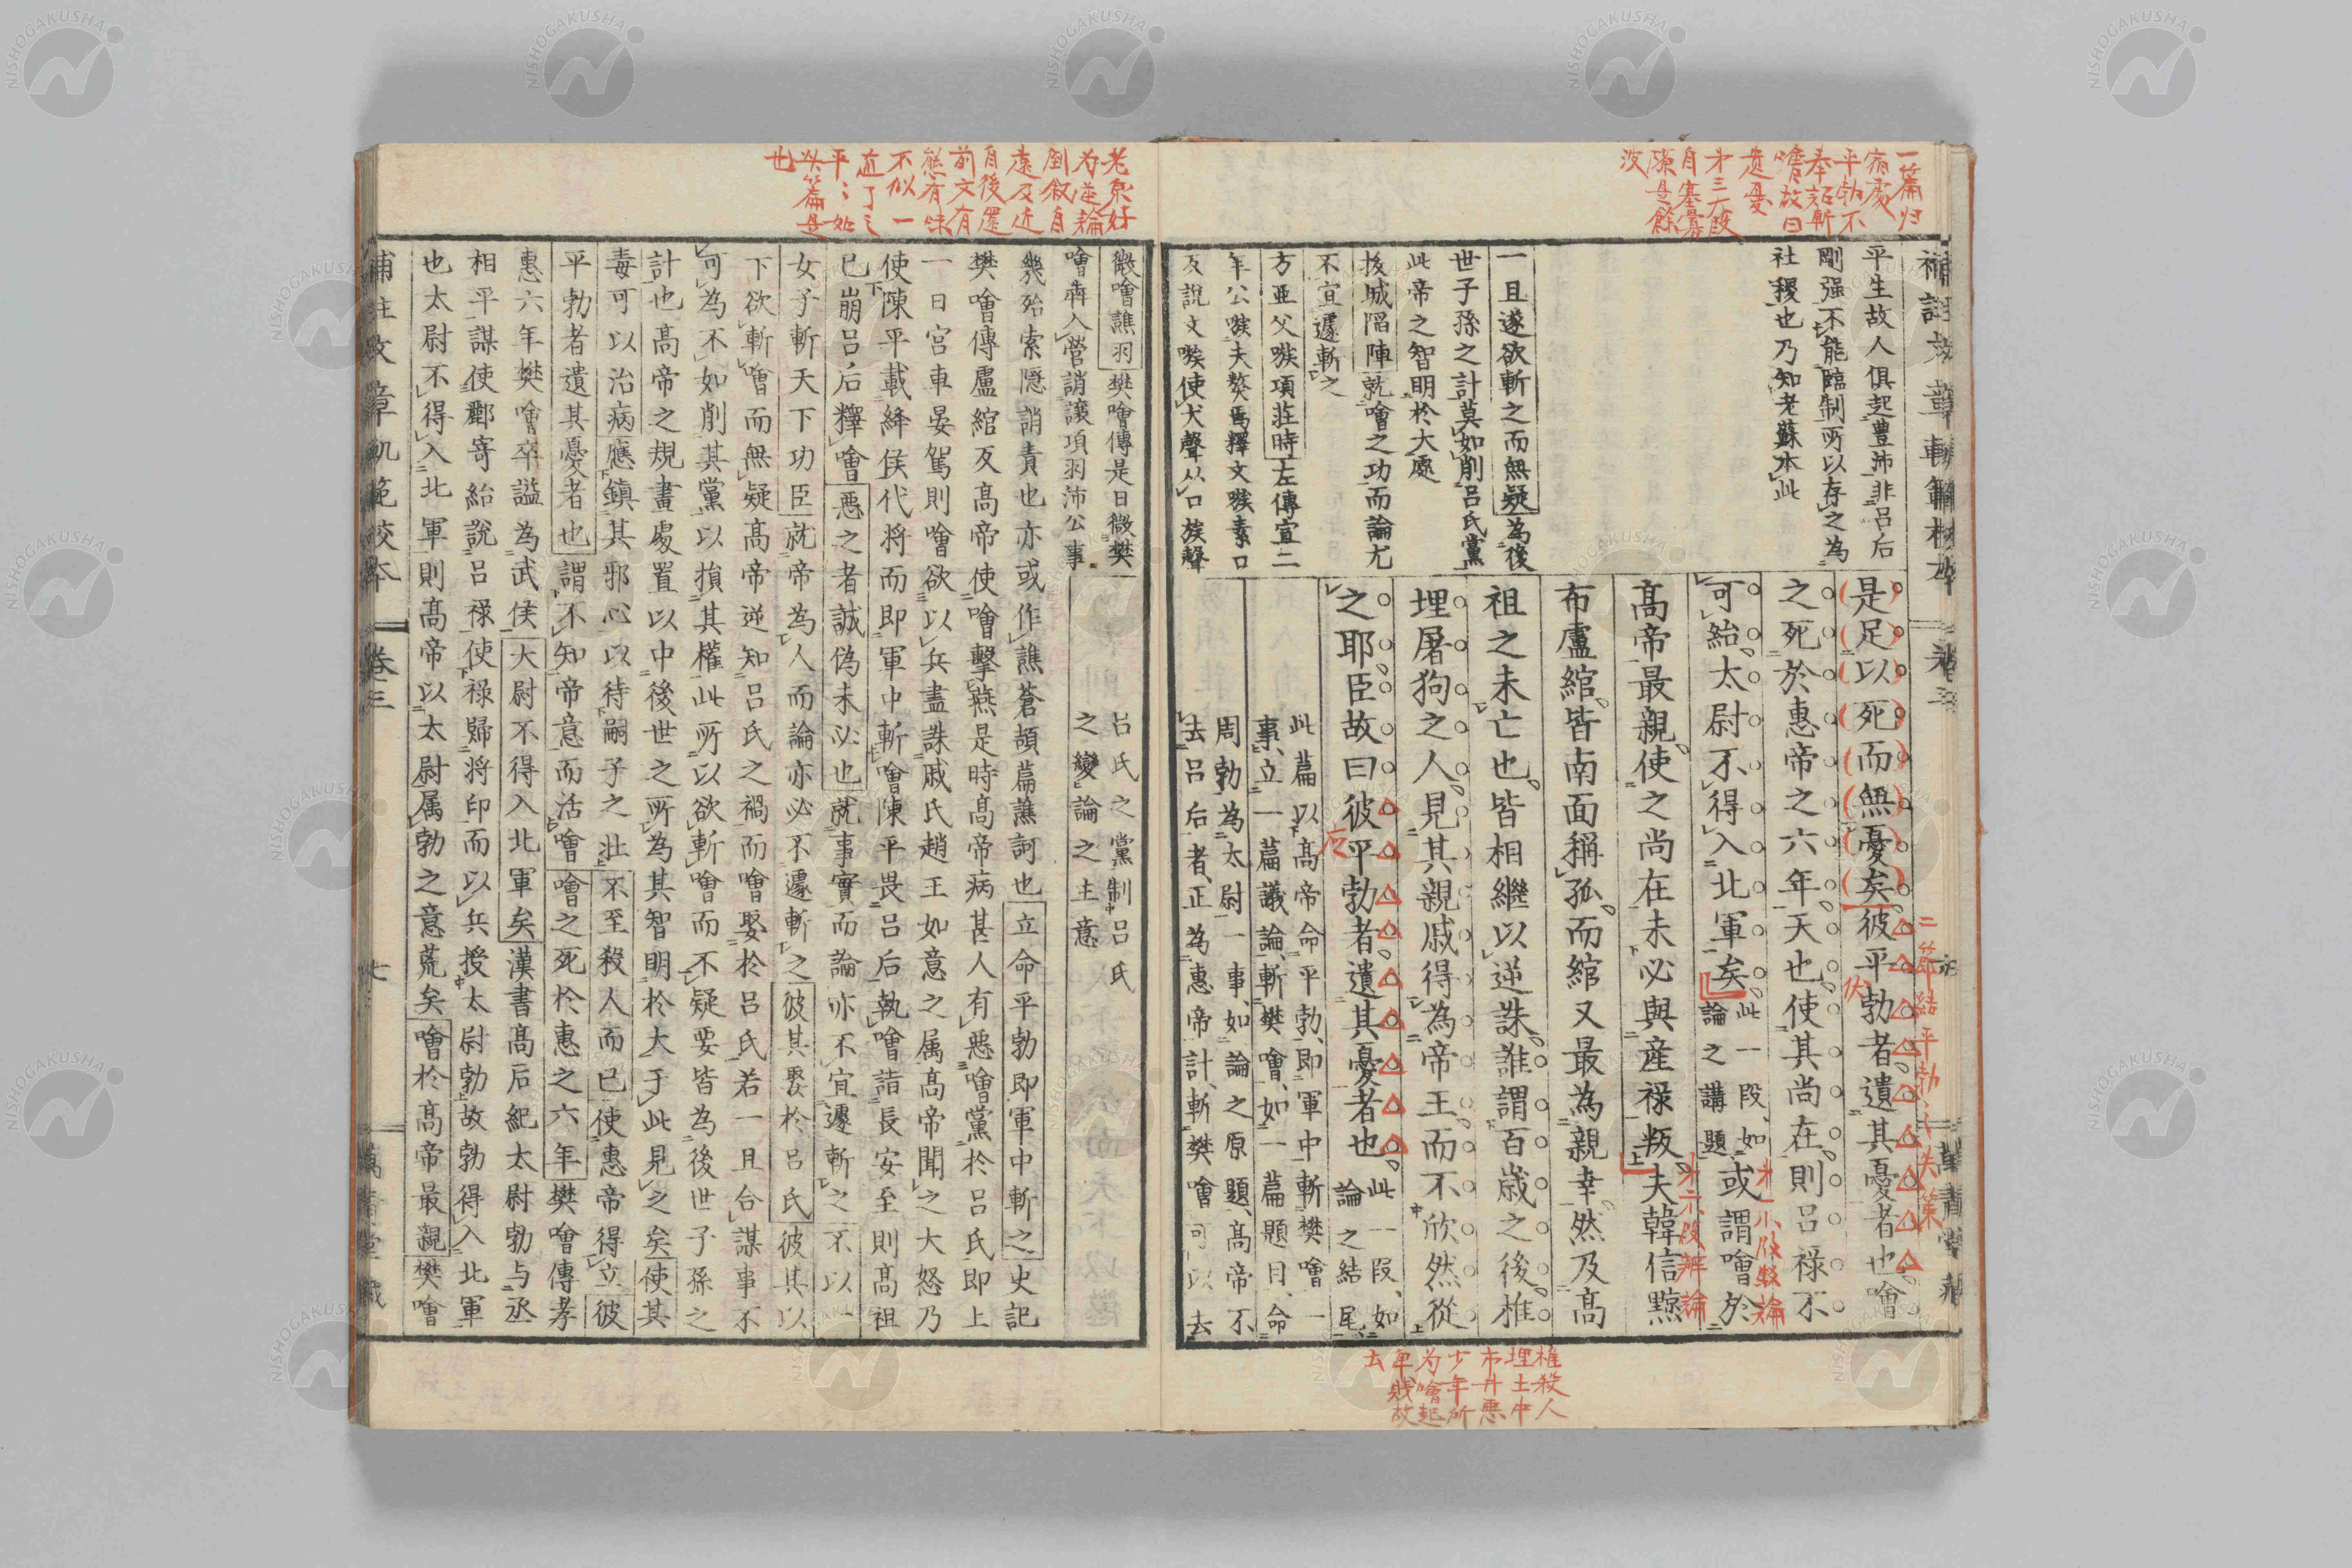 一篇归
宿處
平勃不
奉詔斬
噲故曰
遺憂
才三大段
自塞署
源是餘
波
平生故人俱起豊沛非呂后
剛强不能臨制所以存之為
社稷也乃知老蘇本此
一旦遂欲斬之而無疑為後
世子孫之計莫如削呂氏黨
此帝之智明於大處
拔城陷陣就噲之功而論尤
不宜遽斬之
方亜父嗾項莊時左傳宣二
年公嗾夫獒焉釋文嗾素口
反說文嗾使犬聲以口族聲
是足以死而無憂矣彼平勃者遺其憂者也噲
之死於惠帝之六年天也使其尚在則呂禄不
可紿太尉不得入北軍矣此一段如
論之講題或謂噲於
髙帝最親使之尚在未必與產禄叛夫韓信黥
布盧綰皆南面稱孤而綰又最為親幸然及髙
祖之未亡也皆相繼以逆誅誰謂百歲之後椎
埋屠狗之人見其親戚得為帝王而不欣然從
之耶臣故曰彼平勃者遺其憂者也此一段如
論之結尾
此篇以髙帝命平勃即軍中斬樊噲一
事立一篇議論斬樊噲如一篇題目命
周勃為太尉一事如論之原題髙帝不
去呂后者正為惠帝計斬樊噲可以去
二節結平勃失策
伏
才一小段駁論
才二小段辨論
应
椎殺人
埋土中
市井悪
少年所
为噲起
卑賎故
去
老泉好
为逆論
倒叙自
遠及近
自後還
前文有
態有味
不似一
直了之
平〻始
以篇是
也
呂氏之黨制呂氏
之變論之主意
微噲譙羽樊噲傳是日微樊
噲犇入營誚讓項羽沛公事
幾殆索隠誚責也亦或作譙蒼頡篇譙訶也立命平勃即軍中斬之史記
樊噲傳盧綰反髙帝使噲擊燕是時髙帝病甚人有惡噲黨於呂氏即上
一日宮車晏駕則噲欲以兵盡誅戚氏趙王如意之属髙帝聞之大怒乃
使陳平載絳侯代將而即軍中斬噲陳平畏呂后執噲詣長安至則髙祖
已崩呂后釋噲惡之者誠偽未必也就事實而論亦不宜遽斬之不以一
女子斬天下功臣就帝為人而論亦必不遽斬之彼其娶於呂氏彼其以
下欲斬噲而無疑髙帝逆知呂氏之禍而噲娶於呂氏若一旦合謀事不
可為不如削其黨以損其權此所以欲斬噲而不疑要皆為後世子孫之
計也髙帝之規畫處置以中後世之所為其智明於大于此見之矣使其
毒可以治病應鎮其邪心以待嗣子之壯不至殺人而已使惠帝得立彼
平勃者遺其憂者也謂不知帝意而活噲噲之死於惠之六年樊噲傳孝
惠六年樊噲卒謚為武侯大尉不得入北軍矣漢書髙后紀太尉勃与丞
相平謀使酈寄紿說呂禄使禄歸将印而以兵授太尉勃故勃得入北軍
也太尉不得入北軍則髙帝以太尉属勃之意荒矣噲於髙帝最親樊噲
補註文章軌範校本　卷三